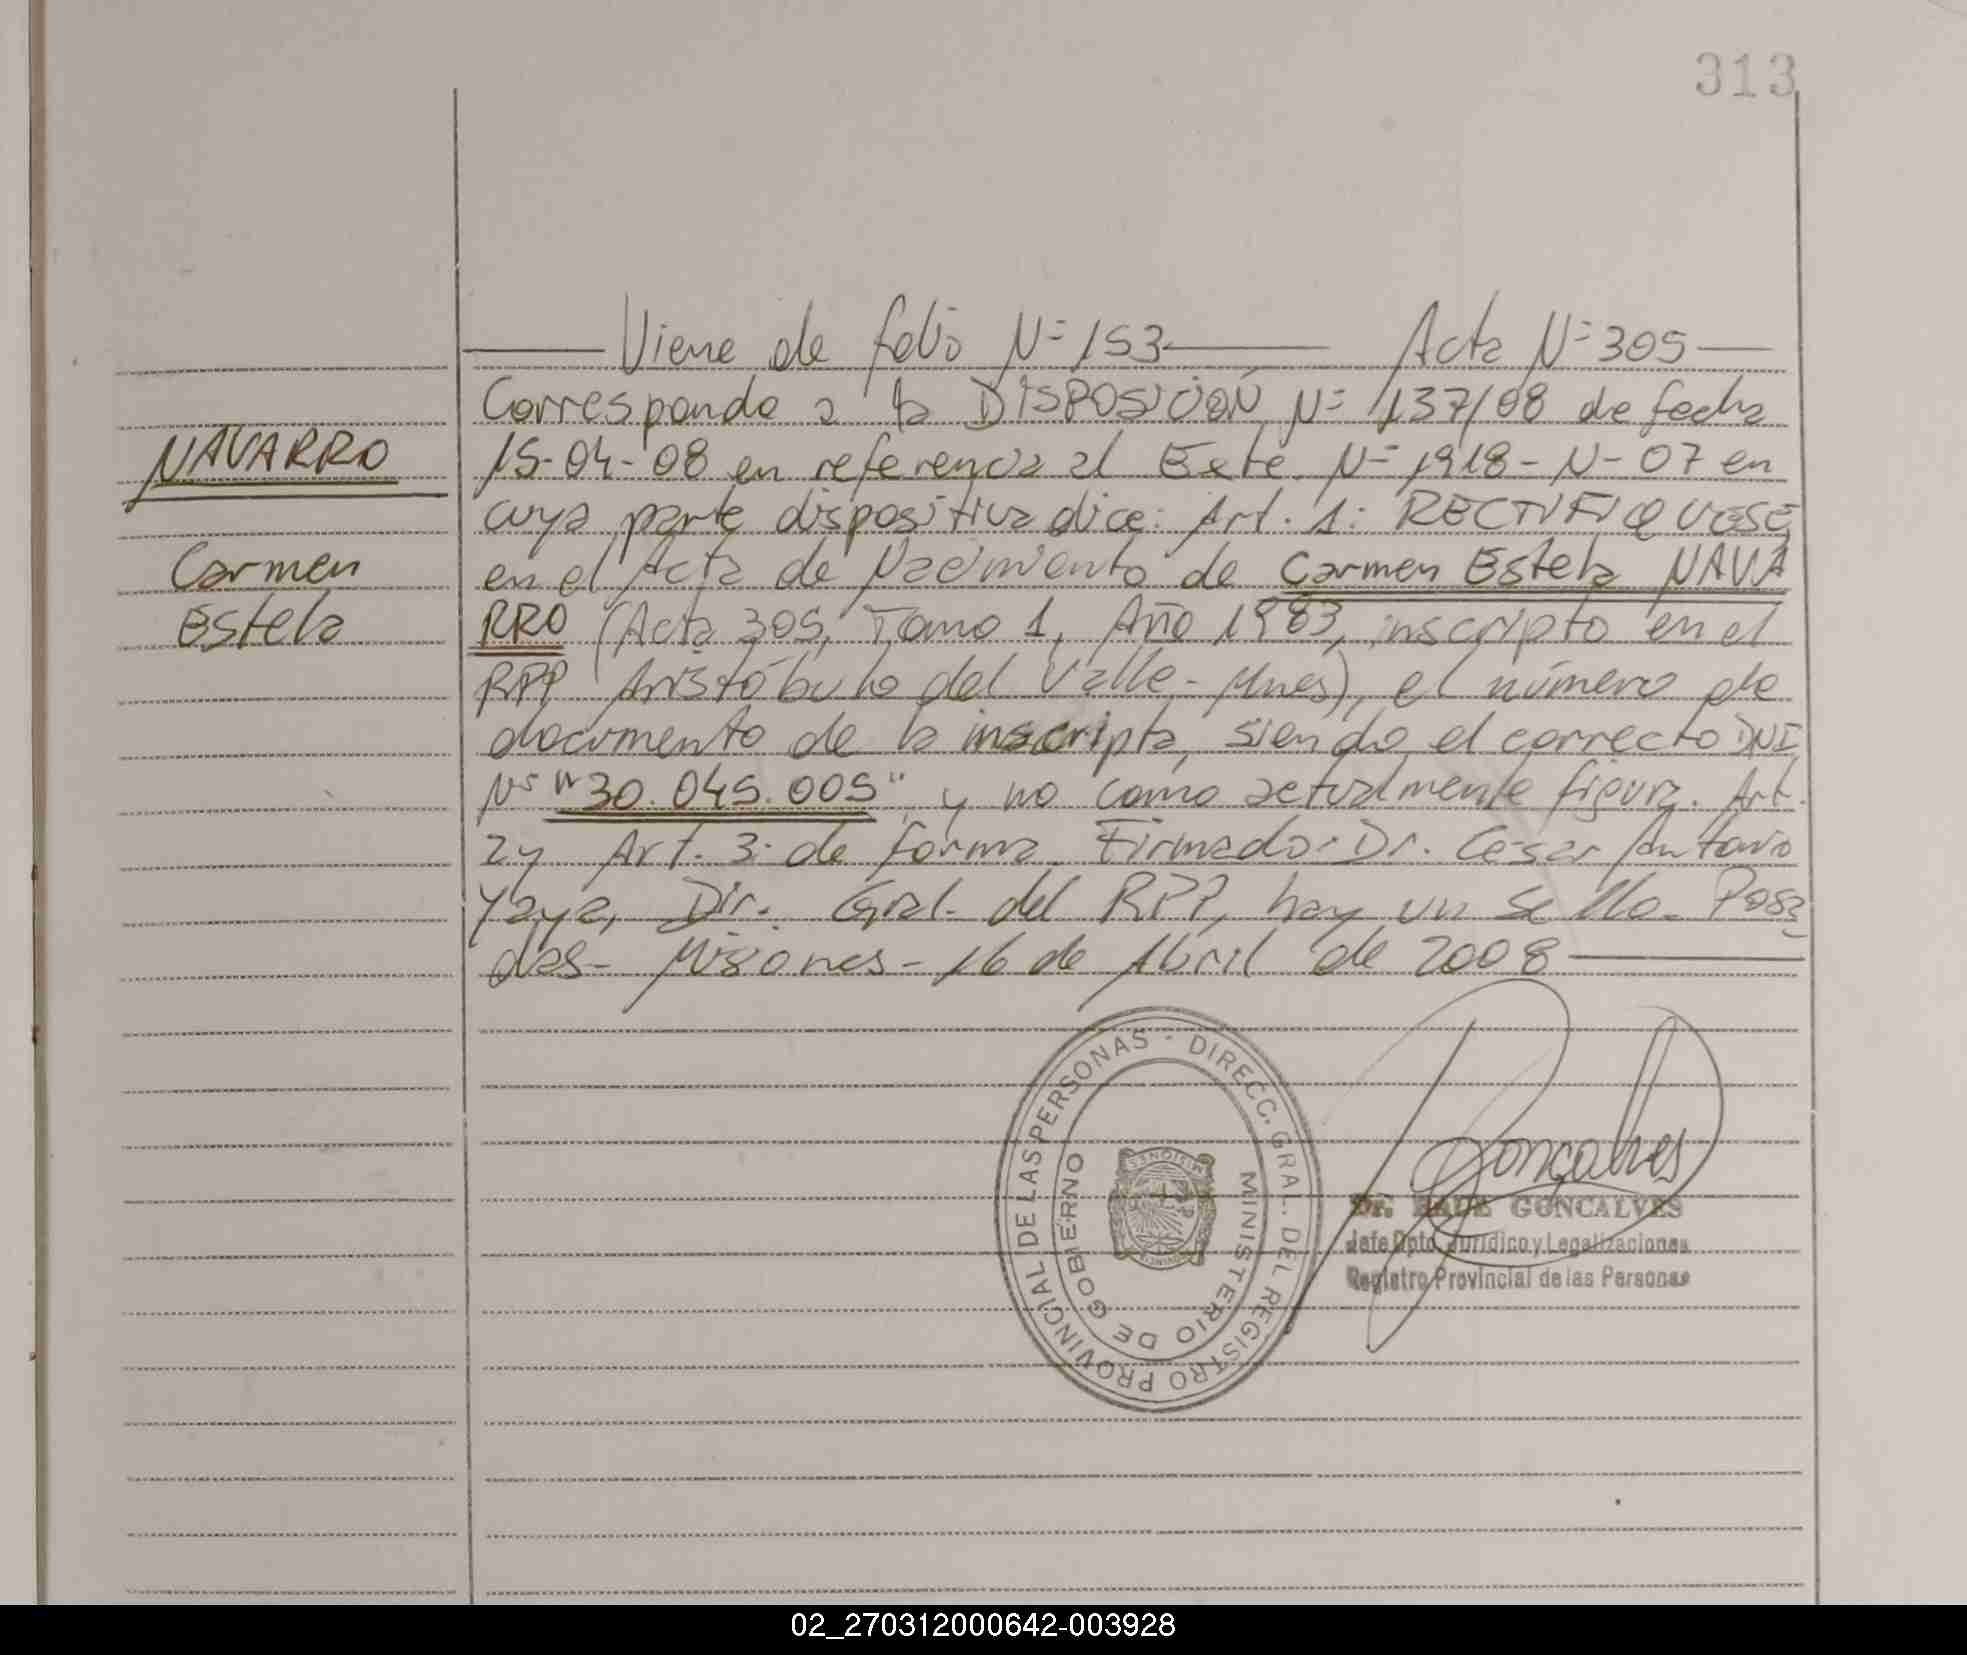 313
Viene de folio Nº 153 Acta Nº 305
Corresponde a la DISPOSICIÓN Nº 137/08 de fecha
NAVARRO
15-04-08 en referencia al Exte. Nº 1918-N-07 en
cuya parte dispositiva dice: Art. 1: RECTIFIQUESE
Carmen
en el Acta de Nacimiento de Carmen Estela NAVA
Estela
RRO (Acta 305, Tomo 1, Año 1983, inscripto en el
RPP Aristóbulo del Valle - Mnes), el número de
documento de la inscripta, siendo el correcto DNI
Nº "30.045.005" y no como actualmente figura. Art.
2 y Art. 3: de forma. Firmado: Dr. Cesar Antonio
Yaya, Dir. Gral. del RPP, hay un sello. Posa
das - Misiones - 16 de Abril de 2008
REGISTRO PROVINCIAL DE LAS PERSONAS - DIRECC. GRAL. DEL
MINISTERIO DE GOBIERNO
MISIONES
PROVINCIA
Gonçalves
Dr. RAUL GONCALVES
Jefe Dpto. Jurídico y Legalizaciones
Registro Provincial de las Personas
02_270312000642-003928